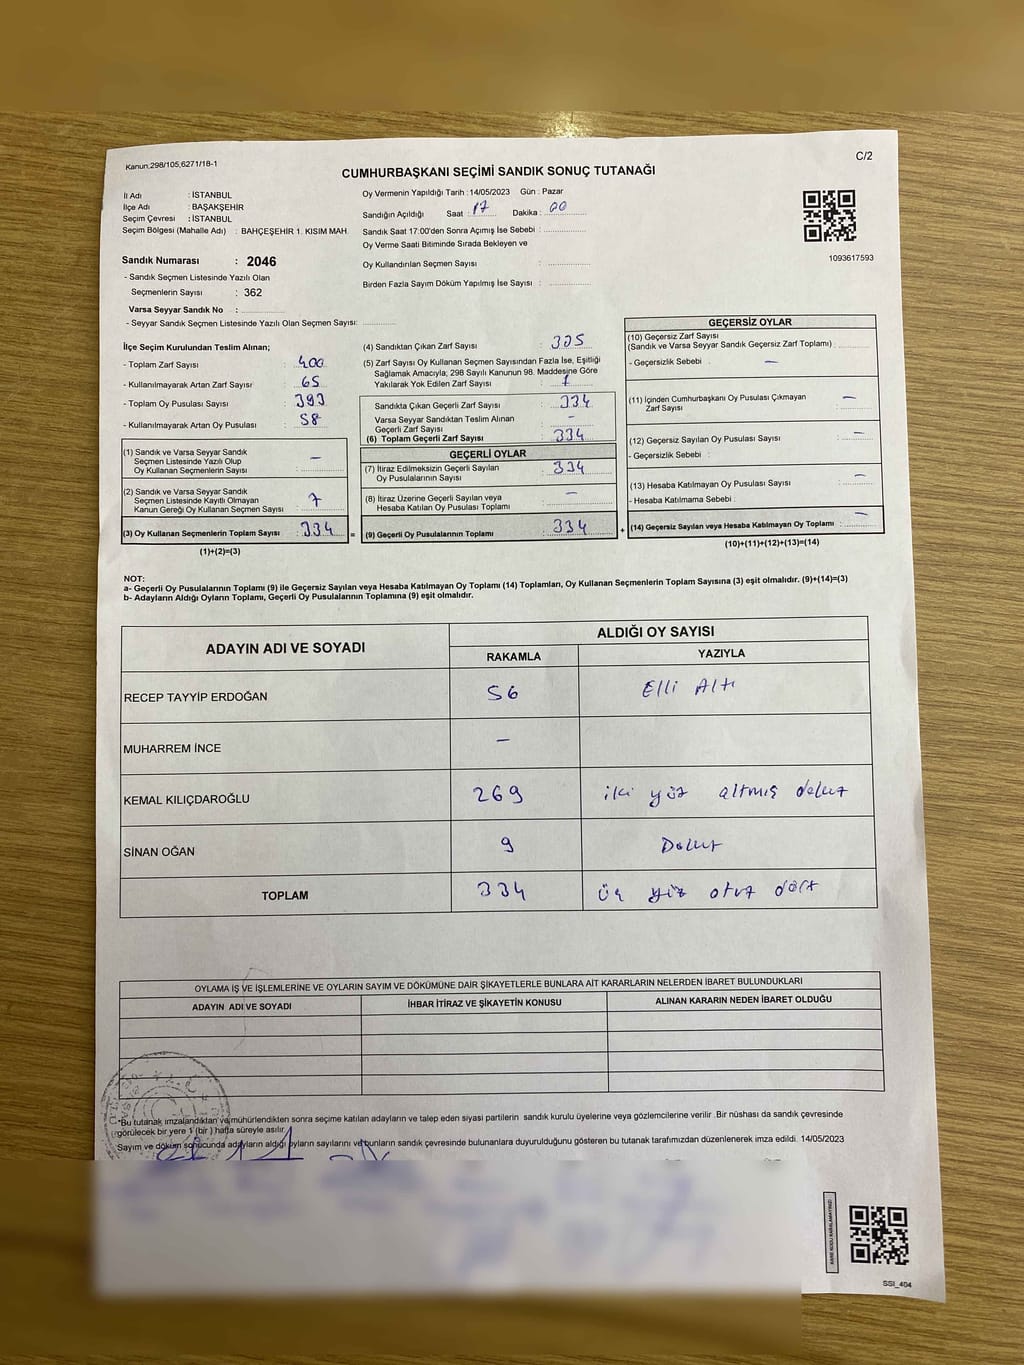 Kanun,298/105,6271/18-1
C/2
CUMHURBAŞKANI SEÇİMİ SANDIK SONUÇ TUTANAĞI
İl Adı : İSTANBUL
İlçe Adı : BAŞAKŞEHİR
Seçim Çevresi : İSTANBUL
Seçim Bölgesi (Mahalle Adı) : BAHÇEŞEHİR 1. KISIM MAH.
Oy Vermenin Yapıldığı Tarih : 14/05/2023 Gün : Pazar
Sandığın Açıldığı Saat : 17 Dakika : 00
Sandık Saat 17:00'den Sonra Açımış İse Sebebi :
Oy Verme Saati Bitiminde Sırada Bekleyen ve
Oy Kullandırılan Seçmen Sayısı :
Birden Fazla Sayım Döküm Yapılmış İse Sayısı :
1093617593
Sandık Numarası : 2046
- Sandık Seçmen Listesinde Yazılı Olan
Seçmenlerin Sayısı : 362
Varsa Seyyar Sandık No :
- Seyyar Sandık Seçmen Listesinde Yazılı Olan Seçmen Sayısı:
İlçe Seçim Kurulundan Teslim Alınan;
- Toplam Zarf Sayısı : 400
- Kullanılmayarak Artan Zarf Sayısı : 65
- Toplam Oy Pusulası Sayısı : 393
- Kullanılmayarak Artan Oy Pusulası : 58
(1) Sandık ve Varsa Seyyar Sandık
Seçmen Listesinde Yazılı Olup
Oy Kullanan Seçmenlerin Sayısı : –
(2) Sandık ve Varsa Seyyar Sandık
Seçmen Listesinde Kayıtlı Olmayan
Kanun Gereği Oy Kullanan Seçmen Sayısı : 7
(3) Oy Kullanan Seçmenlerin Toplam Sayısı : 334 =
(1)+(2)=(3)
(4) Sandıktan Çıkan Zarf Sayısı : 335
(5) Zarf Sayısı Oy Kullanan Seçmen Sayısından Fazla İse, Eşitliği
Sağlamak Amacıyla; 298 Sayılı Kanunun 98. Maddesine Göre
Yakılarak Yok Edilen Zarf Sayısı : 1
Sandıkta Çıkan Geçerli Zarf Sayısı : 334
Varsa Seyyar Sandıktan Teslim Alınan
Geçerli Zarf Sayısı : –
(6) Toplam Geçerli Zarf Sayısı : 334
GEÇERLİ OYLAR
(7) İtiraz Edilmeksizin Geçerli Sayılan
Oy Pusulalarının Sayısı : 334
(8) İtiraz Üzerine Geçerli Sayılan veya
Hesaba Katılan Oy Pusulası Toplamı : –
(9) Geçerli Oy Pusulalarının Toplamı : 334 +
GEÇERSİZ OYLAR
(10) Geçersiz Zarf Sayısı
(Sandık ve Varsa Seyyar Sandık Geçersiz Zarf Toplamı) :
- Geçersizlik Sebebi : –
(11) İçinden Cumhurbaşkanı Oy Pusulası Çıkmayan
Zarf Sayısı : –
(12) Geçersiz Sayılan Oy Pusulası Sayısı : –
- Geçersizlik Sebebi :
(13) Hesaba Katılmayan Oy Pusulası Sayısı : –
- Hesaba Katılmama Sebebi :
(14) Geçersiz Sayılan veya Hesaba Katılmayan Oy Toplamı : –
(10)+(11)+(12)+(13)=(14)
NOT:
a- Geçerli Oy Pusulalarının Toplamı (9) ile Geçersiz Sayılan veya Hesaba Katılmayan Oy Toplamı (14) Toplamları, Oy Kullanan Seçmenlerin Toplam Sayısına (3) eşit olmalıdır. (9)+(14)=(3)
b- Adayların Aldığı Oyların Toplamı, Geçerli Oy Pusulalarının Toplamına (9) eşit olmalıdır.
ADAYIN ADI VE SOYADI
ALDIĞI OY SAYISI
RAKAMLA YAZIYLA
RECEP TAYYİP ERDOĞAN 56 Elli Altı
MUHARREM İNCE –
KEMAL KILIÇDAROĞLU 269 iki yüz altmış dokuz
SİNAN OĞAN 9 Dokuz
TOPLAM 334 üç yüz otuz dört
OYLAMA İŞ VE İŞLEMLERİNE VE OYLARIN SAYIM VE DÖKÜMÜNE DAİR ŞİKAYETLERLE BUNLARA AİT KARARLARIN NELERDEN İBARET BULUNDUKLARI
ADAYIN ADI VE SOYADI İHBAR İTİRAZ VE ŞİKAYETİN KONUSU ALINAN KARARIN NEDEN İBARET OLDUĞU
*Bu tutanak imzalandıktan ve mühürlendikten sonra seçime katılan adayların ve talep eden siyasi partilerin sandık kurulu üyelerine veya gözlemcilerine verilir .Bir nüshası da sandık çevresinde
görülecek bir yere 1 (bir ) hafta süreyle asılır.
Sayım ve döküm sonucunda adayların aldığı oyların sayılarını ve bunların sandık çevresinde bulunanlara duyurulduğunu gösteren bu tutanak tarafımızdan düzenlenerek imza edildi. 14/05/2023
SSI_404